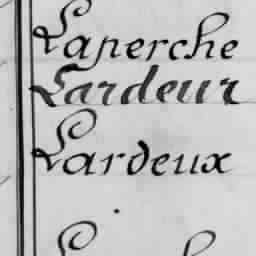 Laperche
Lardeur
Lardeux